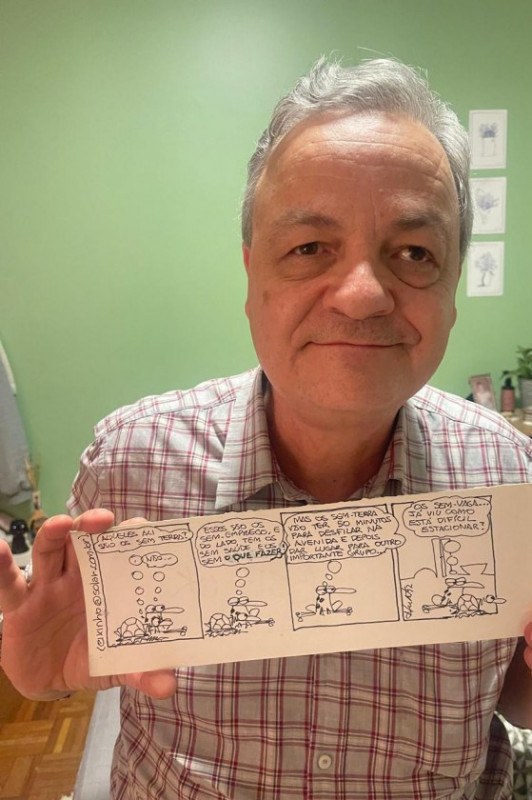 AQUELES ALI
SÃO OS SEM TERRA?
NÃO...
ESSES SÃO OS
SEM-EMPREGO, E
DO LADO TEM OS
SEM SAÚDE E OS
SEM O QUE FAZER
MAS OS SEM-TERRA
VÃO TER 50 MINUTOS
PARA DESFILAR NA
AVENIDA E DEPOIS
DAR LUGAR PARA OUTRO
IMPORTANTE GRUPO...
OS SEM-VAGA...
JÁ VIU COMO
ESTÁ DIFÍCIL
ESTACIONAR?